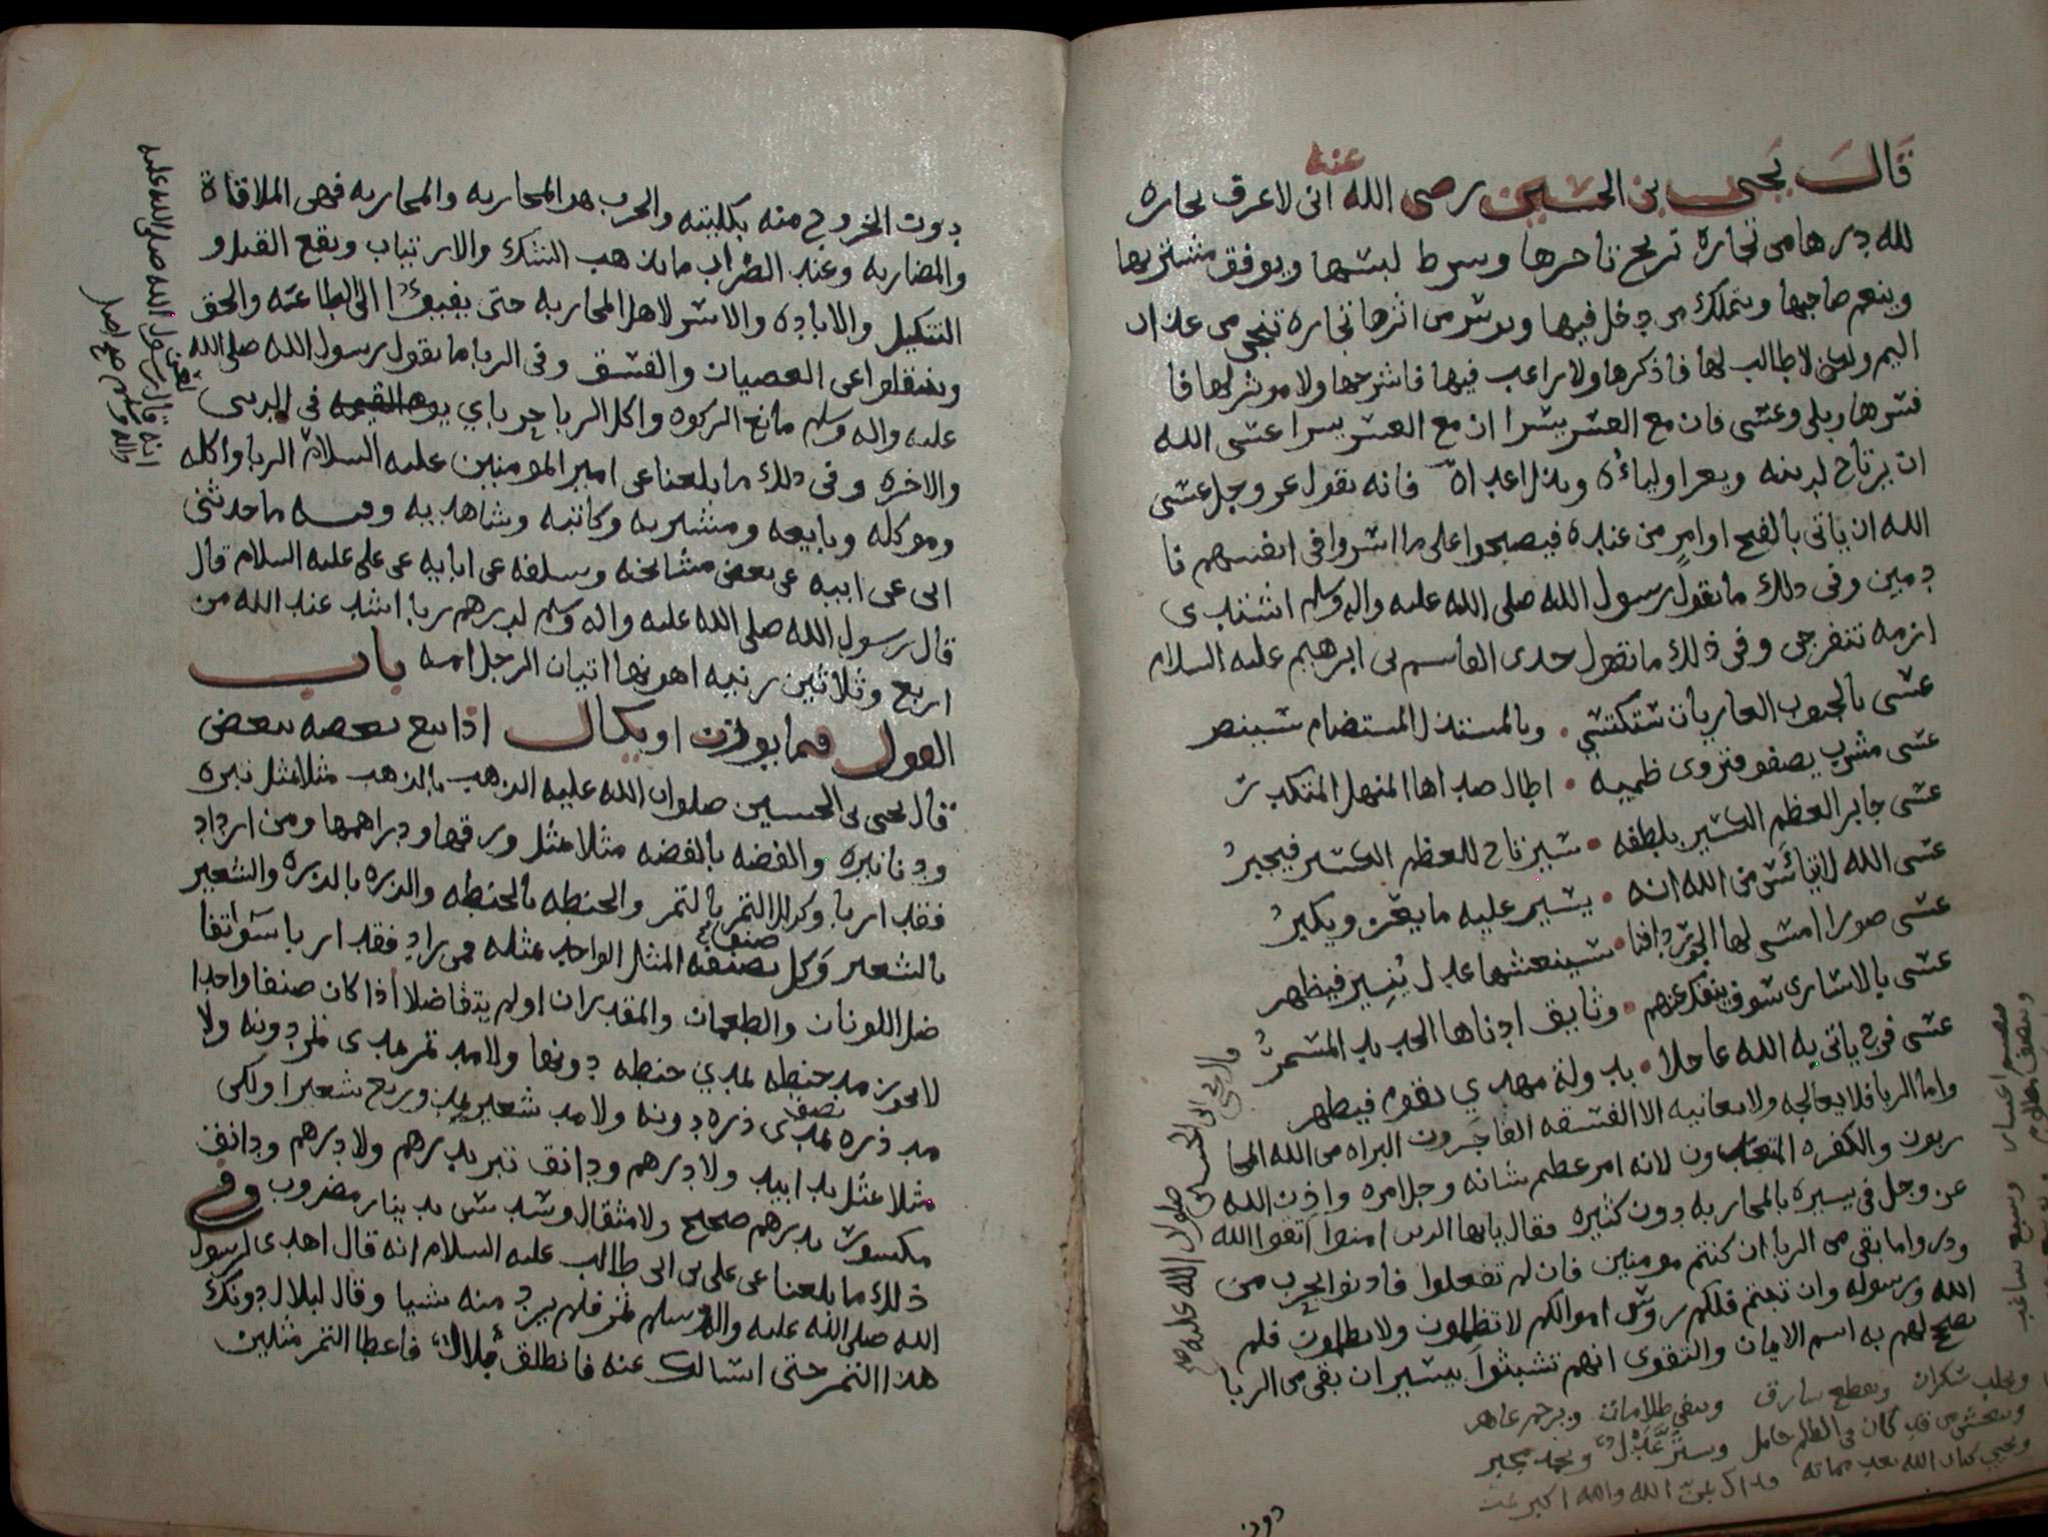 قال يحيى بن الحسين رضى الله عنه انى لاعرف تجاره
لله درها من تجاره تربح تاجرها وسرط لبسها ويوفق مشتريها
وينعم صاحبها ويتملك من دخل فيها ويورث من اثرها تجاره تنجى من عذاب
اليم ولكن لا طالب لها فاذكرها ولا راعب فيها فاشرحها ولا موثر لها فا
فسرها وبلى وعسى فان مع العسر يسرا ان مع العسر يسرا عسى الله
ان يرتاح لدينه ويعز اولياءه ويذل اعداه فانه يقول عز وجل عسى
الله ان ياتى بالفتح او امر من عنده فيصبحوا على ما اسروا فى انفسهم نا
دمين وفى ذلك ما يقول رسول الله صلى الله عليه واله وسلم اشتدى
ازمه تنفرجى وفى ذلك ما يقول جدى القاسم بن ابرهيم عليه السلام
عسى بالجنوب العاريات ستكتسي • وبالمستذل المستضام سينصر
عسى مشرب يصفو فتروى ظميه • اطال صداها المنهل المتكدر
عسى جابر العظم الكسير بلطفه • سيرتاح للعظم الكسير فيجبر
عسى الله لا تيائس من الله انه • يسير عليه ما يعز ويكبر
عسى صورا امسى لها الجور دافنا • سينعشها عدل ينير فيظهر
عسى بالاسارى سوف ينفك عنهم • وثايق ادناها الحديد المسمر
عسى فرج ياتى به الله عاجلا • بدولة مهدي يقوم فيظهر
واما الربا فلا يعالجه ولا يعانيه الا الفسقه الفاجرون البراه من الله المحا
ربون والكفره المتعبدون لانه امر عظيم شانه وجل امره واذن الله
عز وجل فى يسيره بالمحاربه دون كثيره فقال يايها الذين امنوا اتقوا الله
وذروا ما بقى من الربا ان كنتم مومنين فان لم تفعلوا فاذنوا بحرب من
الله ورسوله وان تبتم فلكم روس اموالكم لا تظلمون ولا تظلمون فلم
يصح لهم به اسم الايمان والتقوى انهم تشبثوا بيسير ان بقى من الربا
وبجلد سكران ويقطع سارق وينفى ظلامات ويرجم عاهر
ويحيى كتاب الله بعد مماته الله والله اكبر
قال يحيى ابن الحسين صلوات الله عليه
دون
دون الخروج منه بكليته والحرب هو المحاربه والمحاربه فهى الملاقاة
والمضاربه وعند الضراب ما يذهب الشك والارتياب ويقع القتل و
التنكيل والاباده والاسر لاهل المحاربه حتى يفيئوا الى الطاعه والحق
وينتقلوا عن العصيان والفسق وفى الربا ما يقول رسول الله صلى الله
عليه واله وسلم مانع الزكوه واكل الربا حرباي يوم القيمه فى الدنيى
والاخره وفى ذلك ما بلغنا عن امير المومنين عليه السلام الربا واكله
وموكله وبايعه ومشتريه وكاتبه وشاهديه وفيه ما حدثنى
ابى عن ابيه عن بعض مشائخه وسلفه عن ابايه عن على عليه السلام قال
قال رسول الله صلى الله عليه واله وسلم لدرهم ربا اشد عند الله من
اربع وثلاثين زنيه اهونها اتيان الرجل امه باب
القول فيما يوزن او يكال اذا بيع بعضه ببعض
قال يحيى بن الحسين صلوات الله عليه الذهب بالذهب مثلا بمثل تبره
ودنانيره والفضه بالفضه مثلا بمثل ورقها ودراهمها ومن ازداد
فقد اربا وكذلك التمر بالتمر والحنطه بالحنطه والذره بالذره والشعير
بالشعير وكل صنف بصنفه المثل الواحد بمثله فمن زاد فقد اربا سوا اتفا
ضل اللونان والطعمان والمقدران او لم يتفاضلا اذا كان صنفا واحدا
لا يجوز مد حنطه بمدي حنطه دونها ولا مد تمر بمدى تمر دونه ولا
مد ذره بمدى ذره دونه ولا مد شعير بمد وربع شعير اولكن
مثلا بمثل يدا بيد ولا درهم ودانق تبر بدرهم ولا درهم ودانق
مكسور بدرهم صحيح ولا مثقال وسدس بدينار مضروب وفى
ذلك ما بلغنا عن على بن ابى طالب عليه السلام انه قال اهدى لرسول
الله صلى الله عليه واله وسلم تمر فلم يرد منه شيا وقال لبلال دونك
هذا التمر حتى اسالك عنه فانطلق بلال فاعطا التمر مثلين
انه قال رسول الله صلى الله عليه
واله وسلم صح اصل